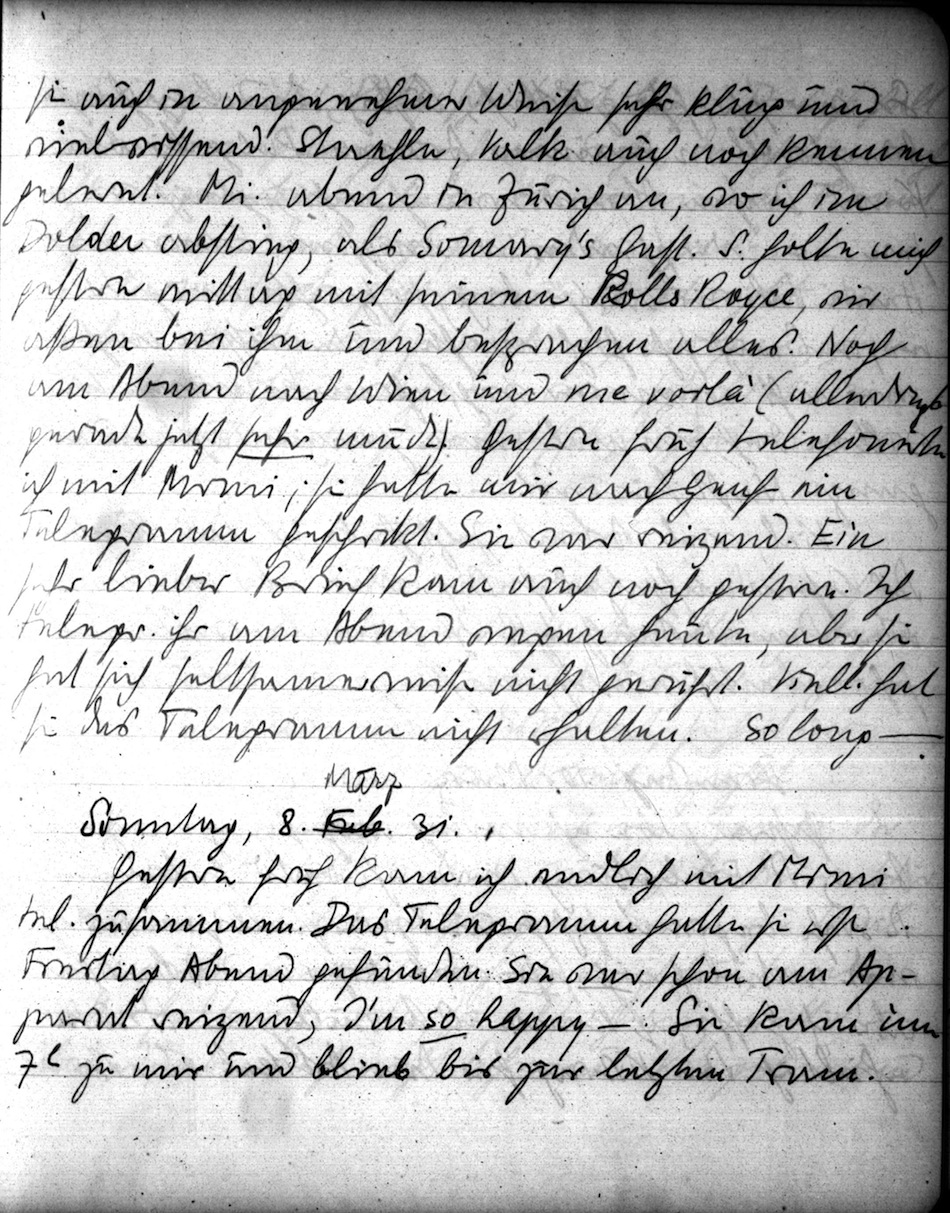 sie auch in angenehmer Weise sehr klug und
vielwissend. Staehle, Valk auch noch kennen
gelernt. Mi. abend in Zürich an, wo ich im
Dolder abstieg, als Somary's Gast. S. holte mich
gestern mittag mit seinem Rolls Royce, wir
aßen bei ihm und besprachen alles. Noch
am Abend nach Wien und me voilà (allerdings
gerade jetzt sehr müde). Gestern früh telefonierte
ich mit Mimi; sie hatte mir nach Genf ein
Telegramm geschickt. Sie war reizend. Ein
sehr lieber Brief kam auch noch gestern. Ich
telegr. ihr am Abend wegen heute, aber sie
hat sich seltsamerweise nicht gerührt. Viell. hat
sie das Telegramm nicht erhalten. So long —
März
Sonntag, 8. Feb. 31.
Gestern früh kam ich endlich mit Mimi
tel. zusammen. Das Telegramm hatte sie erst
Freitag Abend gefunden. Sie war schon am Ap-
parat reizend, I'm so happy —. Sie kam um
7h zu mir und blieb bis zur letzten Tram.